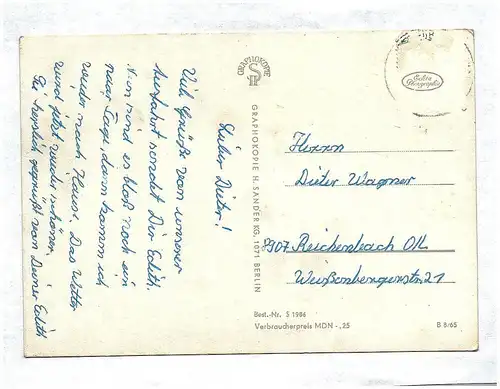 Lieber Dieter!
Viele Grüße von unserer
sendet Dir Edith.
Nun sind es bloß noch ein
paar Tage, dann komm ich
wieder nach Hause. Das Wetter
wird jetzt wieder schöner.
Sei herzlich gegrüßt von Deiner Edith
GRAPHOKOPIE
GRAPHOKOPIE H. SANDER KG, 1071 BERLIN
Echte Photographie
Herrn
Dieter Wagner
8907 Reichenbach OL
Weißenbergerstr. 21
Best.-Nr. S 1986
Verbraucherpreis MDN -,25
B 8/65